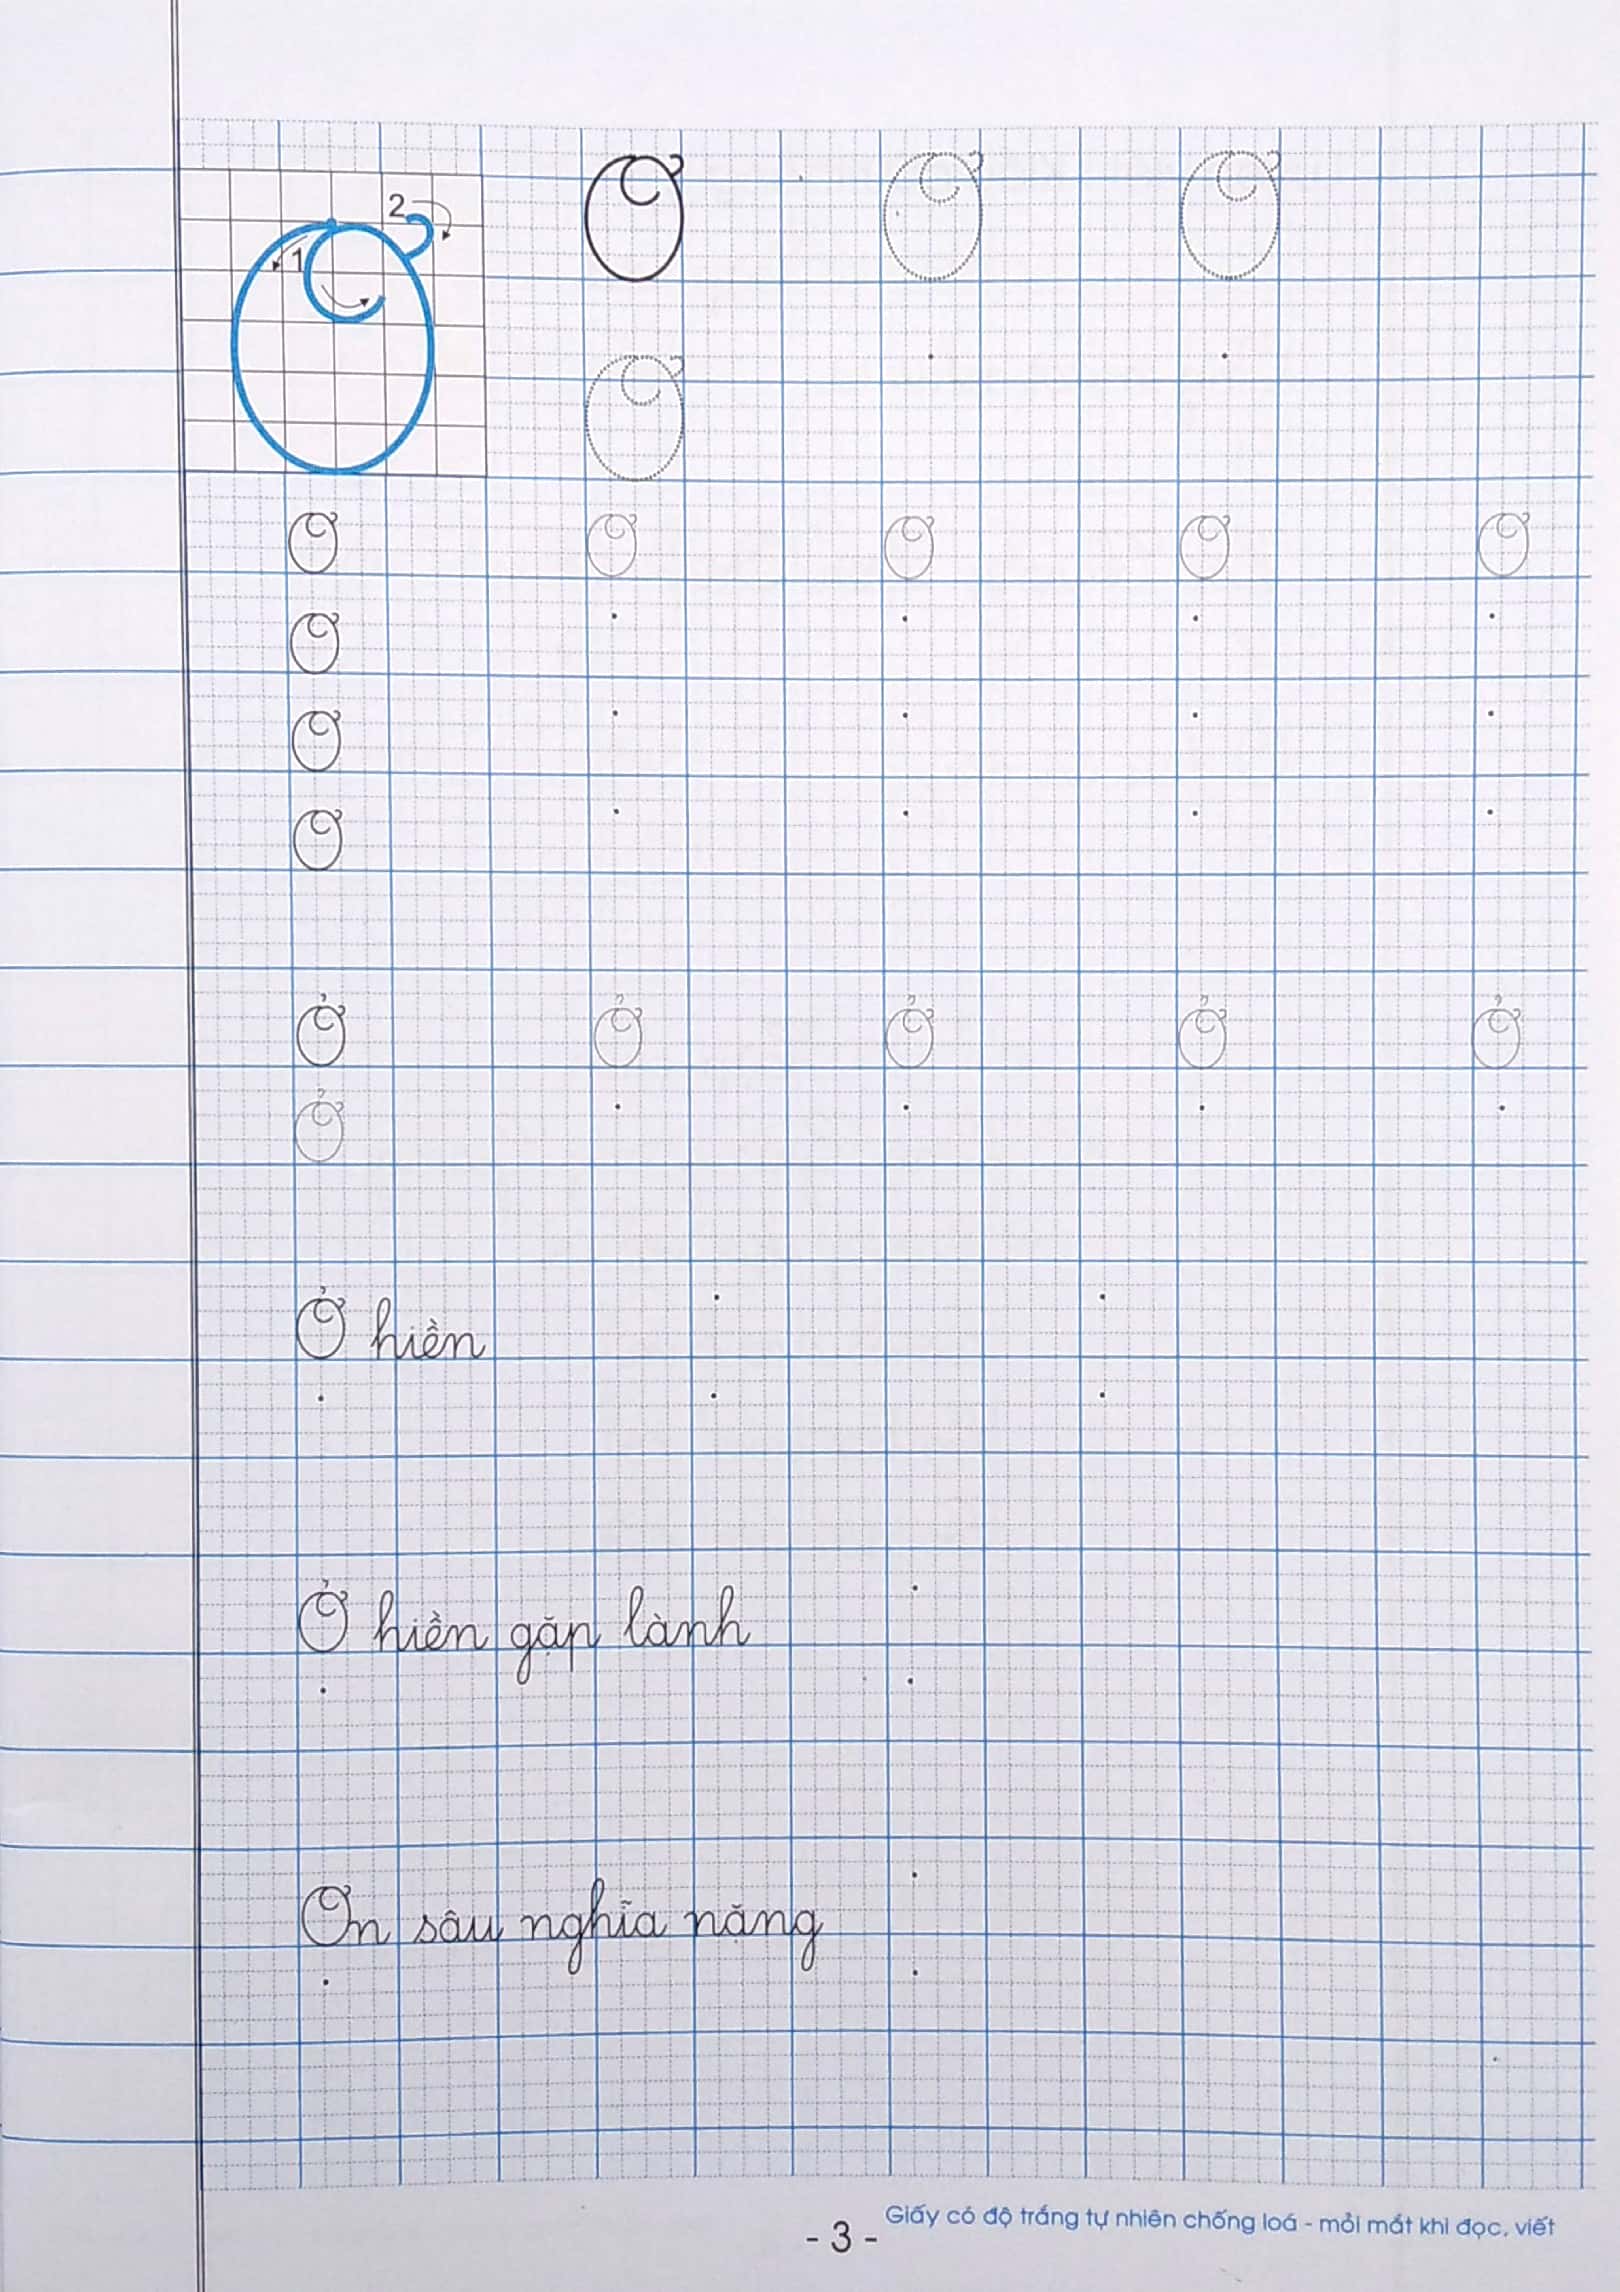 1 2 Ơ Ơ Ơ
Ơ
Ơ Ơ Ơ Ơ Ơ
Ơ
Ơ
Ơ
Ở Ở Ở Ở Ở
Ở
Ở hiền
Ở hiền gặp lành
Ơn sâu nghĩa nặng
Giấy có độ trắng tự nhiên chống loá - mỏi mắt khi đọc, viết
- 3 -